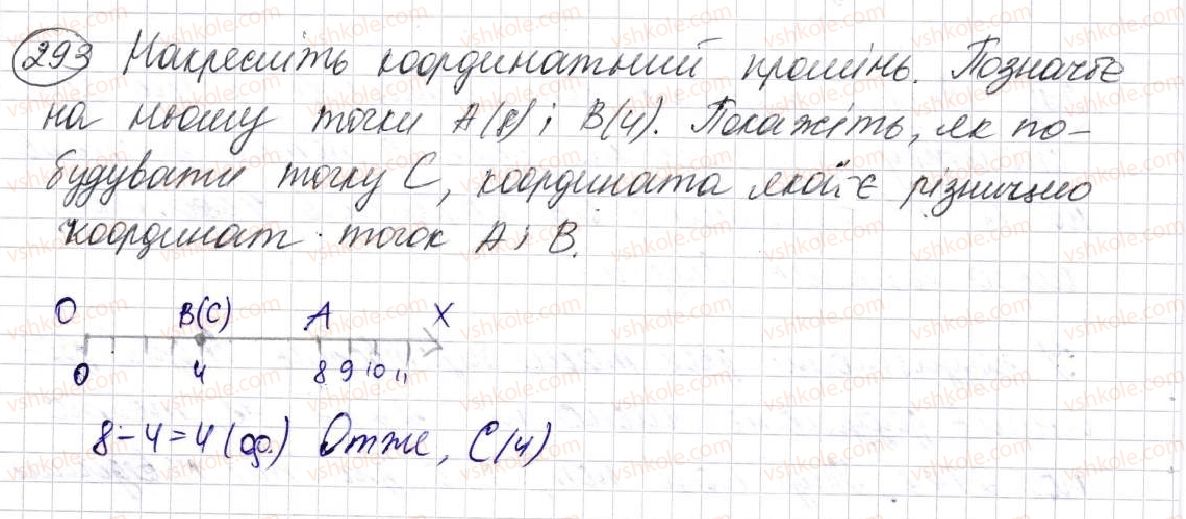 293 Накресліть координатний промінь. Позначте
на ньому точки A(8) і B(4). Покажіть, як по-
будувати точку C, координата якой є різницею
координат точок A і B.
O B(C) A X
0 4 8 9 10 11
8-4=4 (од.) Отже, C(4)